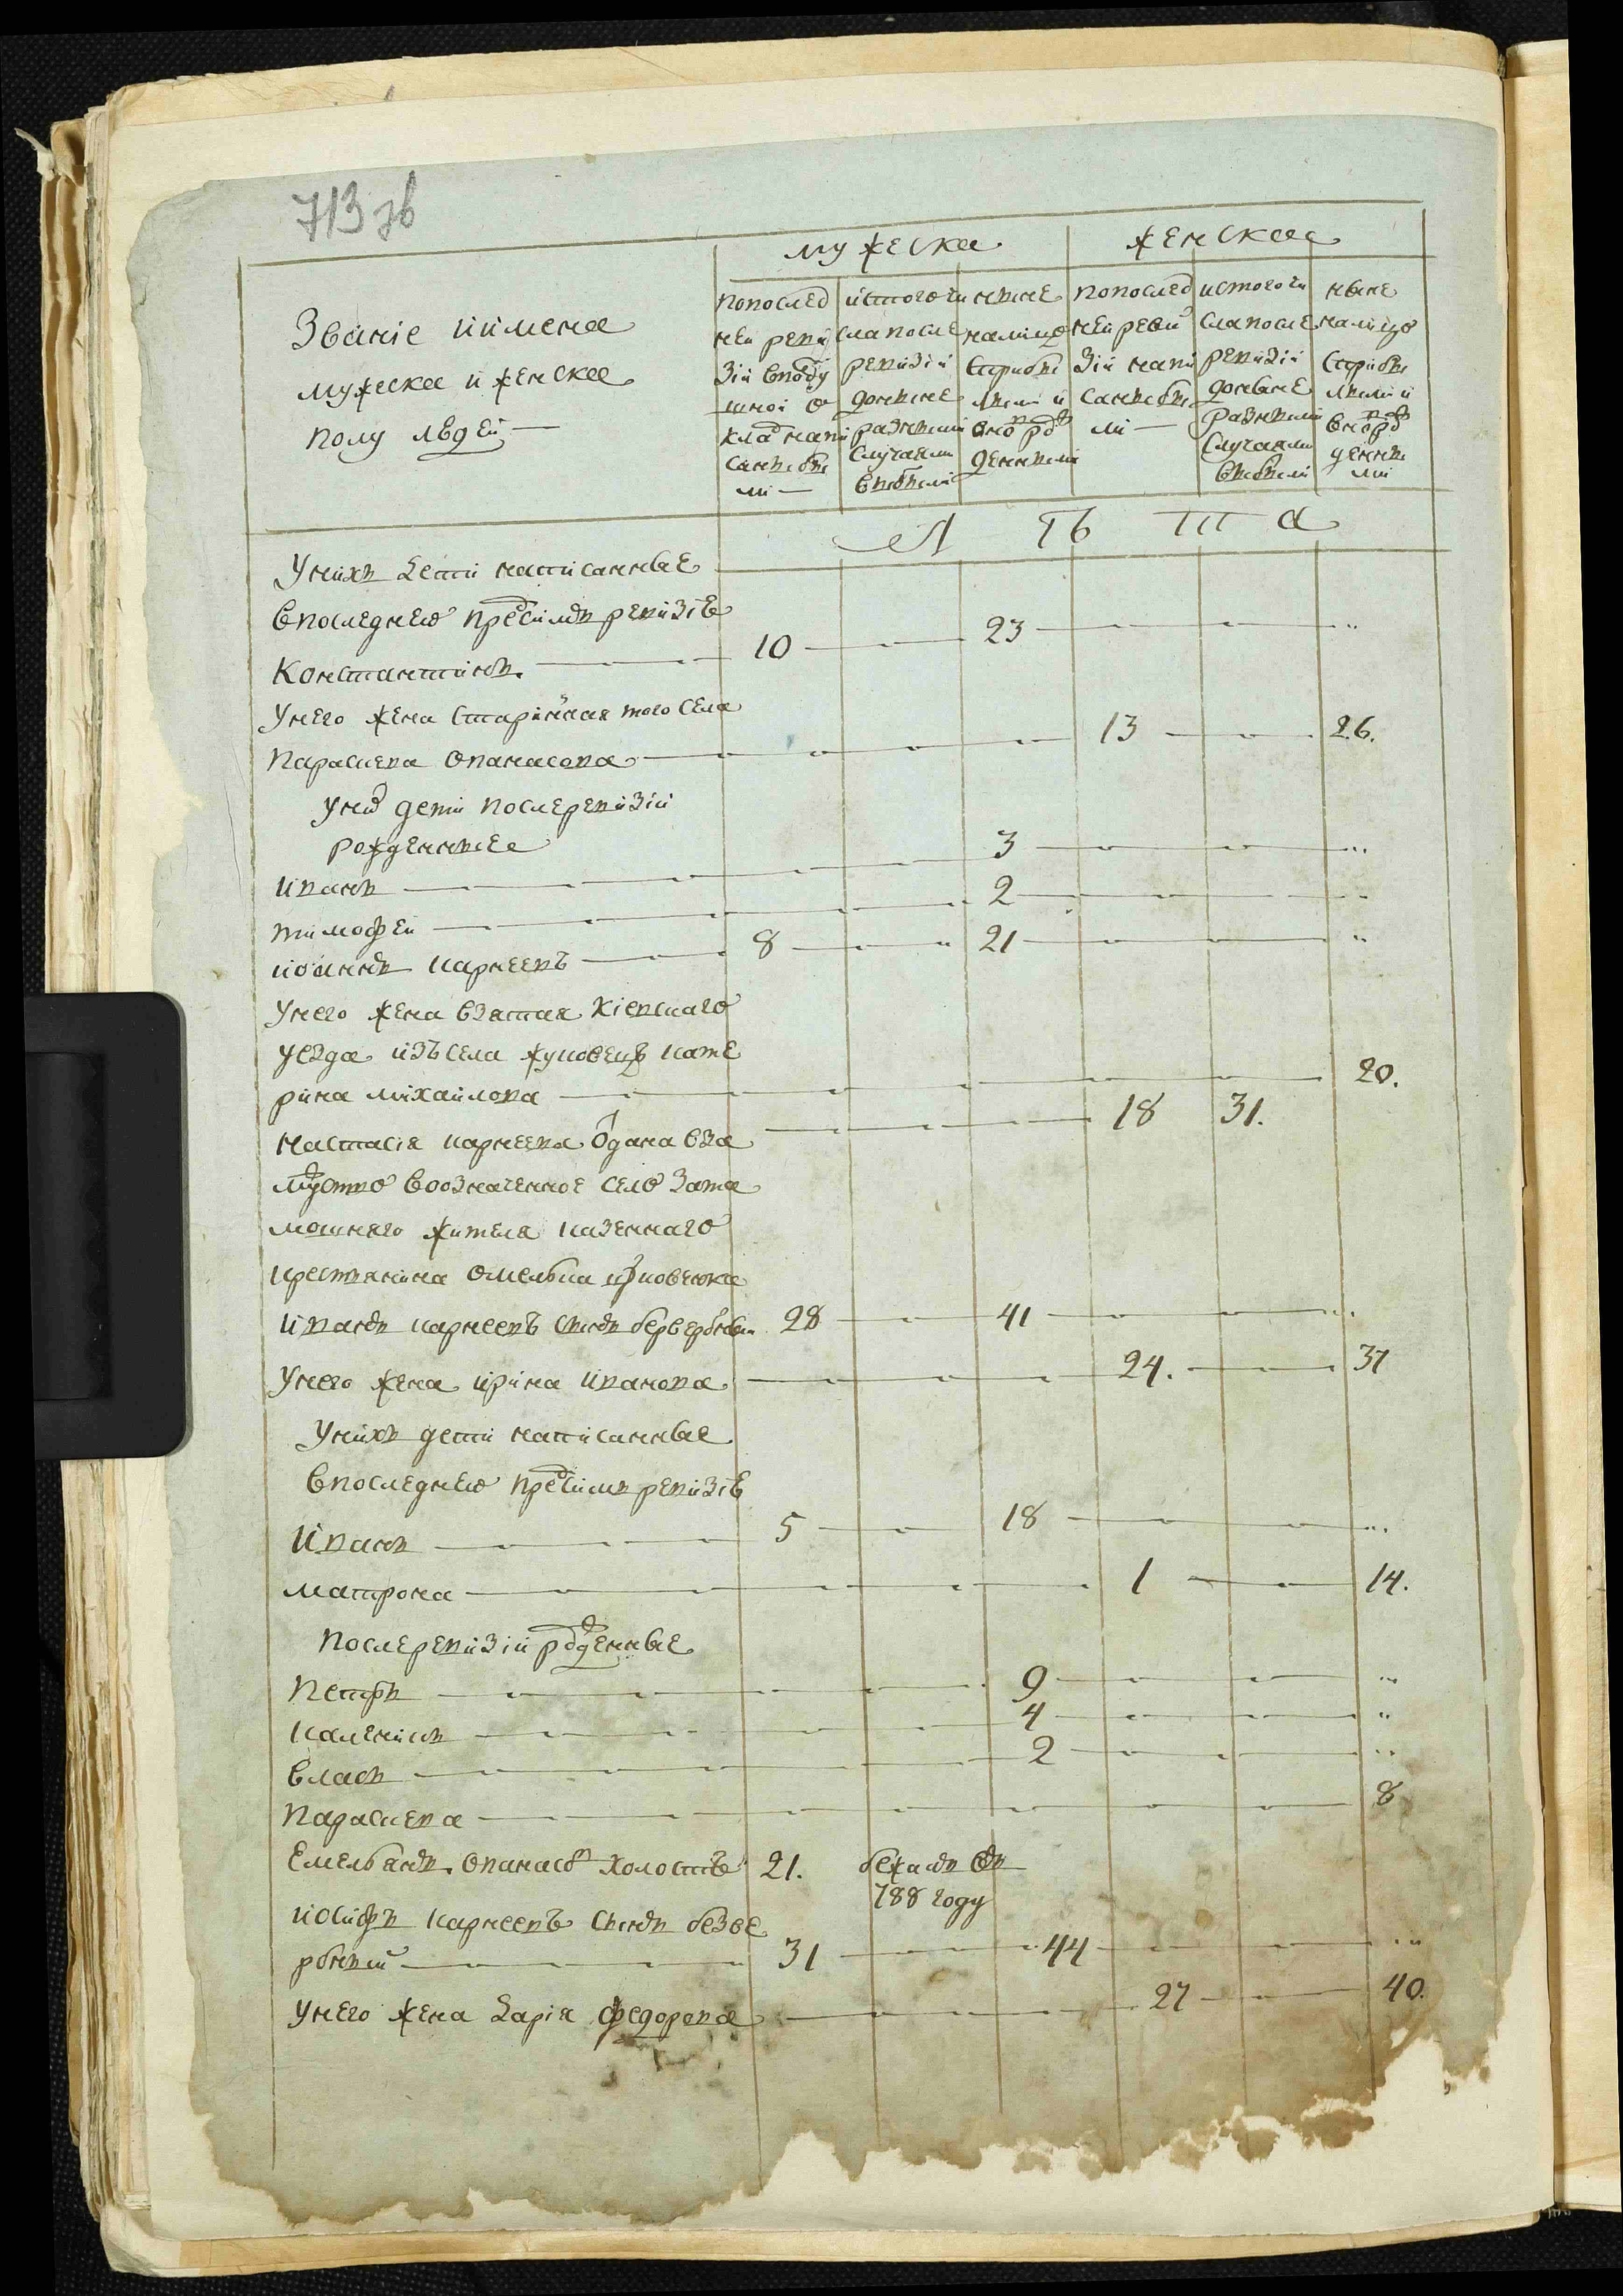 713 зв
мужеска женскаѧ
Званіе иимена
мужеска и женска
полу людей —
попослед
ней реви
зіи вподу
шной о
клад напи
санныбы
ми —
истогочи
сла после
ревизіи
доныне
разными
случаями
выбыли
ныне
налицо
стрибы
лыми и
вновь рож
денными
попослед
ней реви
зіи напи
санныбы
ми —
истогочи
сла после
ревизіи
доныне
разными
случаями
выбыли
ныне
налицо
стрибы
лыми и
вновь рож
денны
ми
Л ѣ т а
Унихъ дети написанные
впоследнею предсимъ ревизіѣ
Константинъ. 10 23 "
Унего жена старинная того села
Параскева Опанасова 13 26.
Унихъ дети послеревизіи
рожденныее
Иванъ 3 "
Тимофей 2 "
Иоаннъ Карнеевъ 8 21 "
Унего жена взятая Кіевскаго
уезда изъ села Жуковецъ Кате
рина Михайлова 20.
Настасія Карнеева отдана вза
мужство воозначенное село Зата
мошняго жителя казеннаго
крестянина Омелька
Иванъ Карнеевъ сынъ Безвербный 28 41 "
Унего жена Ирина Иванова 24. 37
Унихъ дети написанные
впоследнею предсимъ ревизіѣ
Иванъ 5 18 "
Матрона 1 14.
Послеревизіи рожденные
Петръ 9 "
Каленикъ 4 "
Власъ 2 "
Параскева 8
Емельянъ Опанасов холостъ 21. бежалъ въ
788 году
Иосифъ Карнеевъ сынъ Безве
рбный 31 44 "
Унего жена Дарія Федорова 27 40.